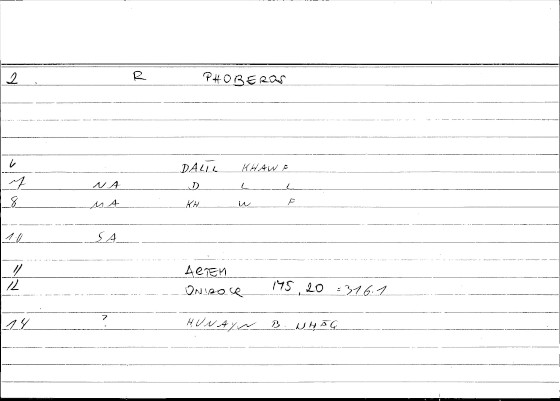 2 . R PHOBEROS
6 DALĪL KHAWF
7 NA D L L
8 MA KH W F
10 SA
11 ARTEM
12 ONIROCR 175,20 =316.1
14 ? HUNAYN B ISHĀQ